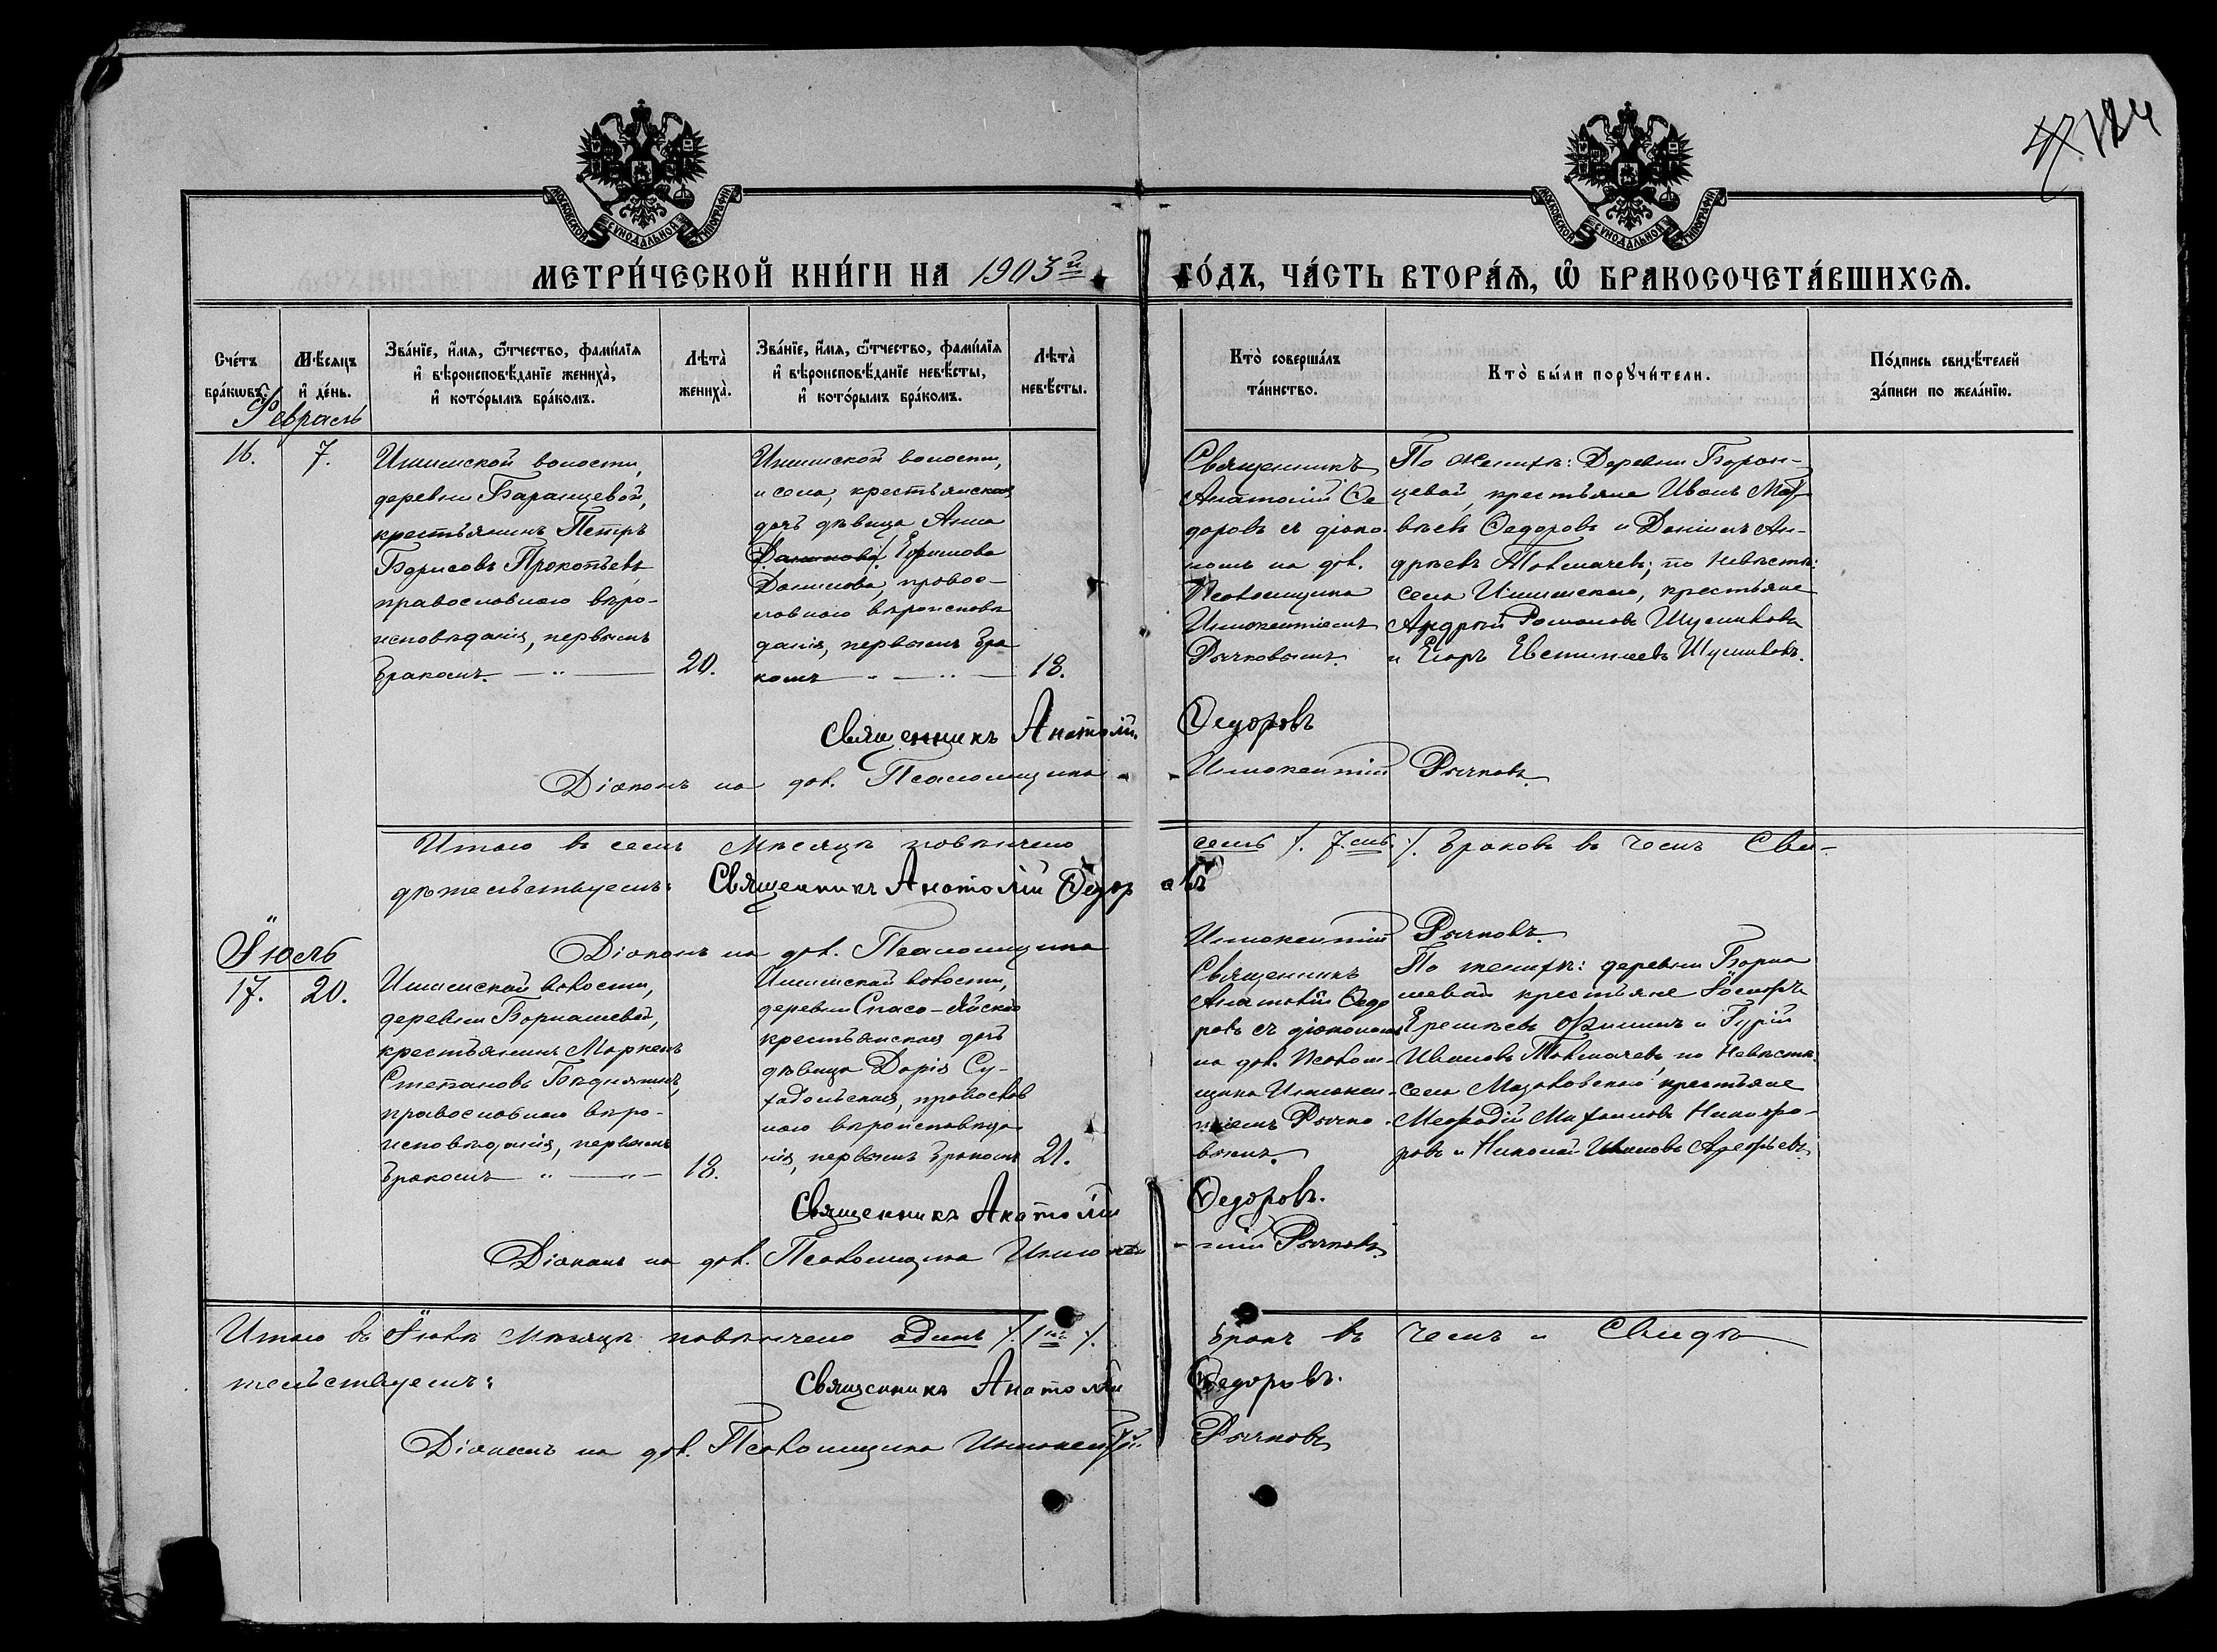 124
МОСКОВСКОЙ СѴНОДАЛЬНОЙ ТИПОГРАФІИ
МОСКОВСКОЙ СѴНОДАЛЬНОЙ ТИПОГРАФІИ
МЕТРИ́ЧЕСКОЙ КНИ́ГИ НА 1903й
ГО́ДЪ, ЧА́СТЬ ВТОРА́Я, Ѡ БРАКОСОЧЕТА́ВШИХСЯ.
Сче́тъ бра́кѡвъ.
Мѣ́сяцъ и҆ де́нь.
Зва́нїе, и҆́мя, ѻ҆́тчество, фами́лїя
и҆ вѣроисповѣ́данїе жениха̀,
и҆ кото́рымъ бра́комъ.
Лѣта̀ жениха̀.
Зва́нїе, и҆́мя, ѻ҆́тчество, фами́лїя
и҆ вѣроисповѣ́данїе невѣ́сты,
и҆ кото́рымъ бра́комъ.
Лѣта̀ невѣ́сты.
Кто̀ соверша́лъ та́инство.
Кто̀ бы́ли порꙋчи́тели.
По́дпись свидѣ́телей за́писи по жела́нїю.
Февраль
16.
7.
Ишимской волости,
деревни Баранцевой,
крестьянинъ Петръ
Борисовъ Прокопьевъ,
православнаго вѣро-
исповѣданія, первымъ
бракомъ.
20.
Ишимской волости,
и села, крестьянская
дочь дѣвица Анна
Ефимова
Данилова, правос-
лавнаго вѣроисповѣ
данія, первымъ бра
комъ
18.
Священникъ
Анатолій Ѳе
доровъ съ діако
номъ на дол.
Псаломщика
Иннокентіемъ
Рычковымъ.
По женихѣ: Деревни Баран-
цевой, крестьяне Иванъ Мат-
вѣевъ Ѳедоровъ и Даніилъ Ан-
дреевъ Толмачевъ; по невѣстѣ:
села Ишимскаго, крестьяне
Андрей Романовъ Шумиловъ
и Егоръ Евстигнеевъ Шумиловъ.
Священникъ Анатолій Ѳедоровъ
Діаконъ на дол. Псаломщика Иннокентій Рычковъ.
Итого въ семъ мѣсяцѣ повѣнчано семь /. 7 мь ./ браковъ въ чемъ Сви-
дѣтельствуемъ: Священникъ Анатолій Ѳедоровъ
Діаконъ на дол. Псаломщика Иннокентій Рычковъ.
Іюль
17.
20.
Ишимской волости,
деревни Барнашевой,
крестьянинъ Маркелъ
Степановъ Бѣднягинъ,
православнаго вѣро-
исповѣданія, первымъ
бракомъ
18.
Ишимской волости,
деревни Спасо-Яйской
крестьянская дочь
дѣвица Дарія Су-
хадольская, православ
наго вѣроисповѣда
нія, первымъ бракомъ
21.
Священникъ
Анатолій Ѳедо
ровъ съ діакономъ
на дол. Псалом-
щика Иннокен-
тіемъ Рычко-
вымъ.
По женихѣ: деревни Барна
шевой крестьяне Іосифъ
Еремѣевъ и Гурій
Ивановъ Толмачевъ, по невѣстѣ:
села Мазаловскаго крестьяне
Меѳодій Михаиловъ Никифо-
ровъ и Николай Ивановъ Арефьевъ.
Священникъ Анатолій Ѳедоровъ.
Діаконъ на дол. Псаломщика Иннокен-тій Рычковъ.
Итого въ Іюлѣ мѣсяцѣ повѣнчано одинъ /. 1 нъ ./ бракъ въ чемъ и Свидѣ
тельствуемъ: Священникъ Анатолій Ѳедоровъ.
Діаконъ на дол. Псаломщика Иннокентій Рычковъ